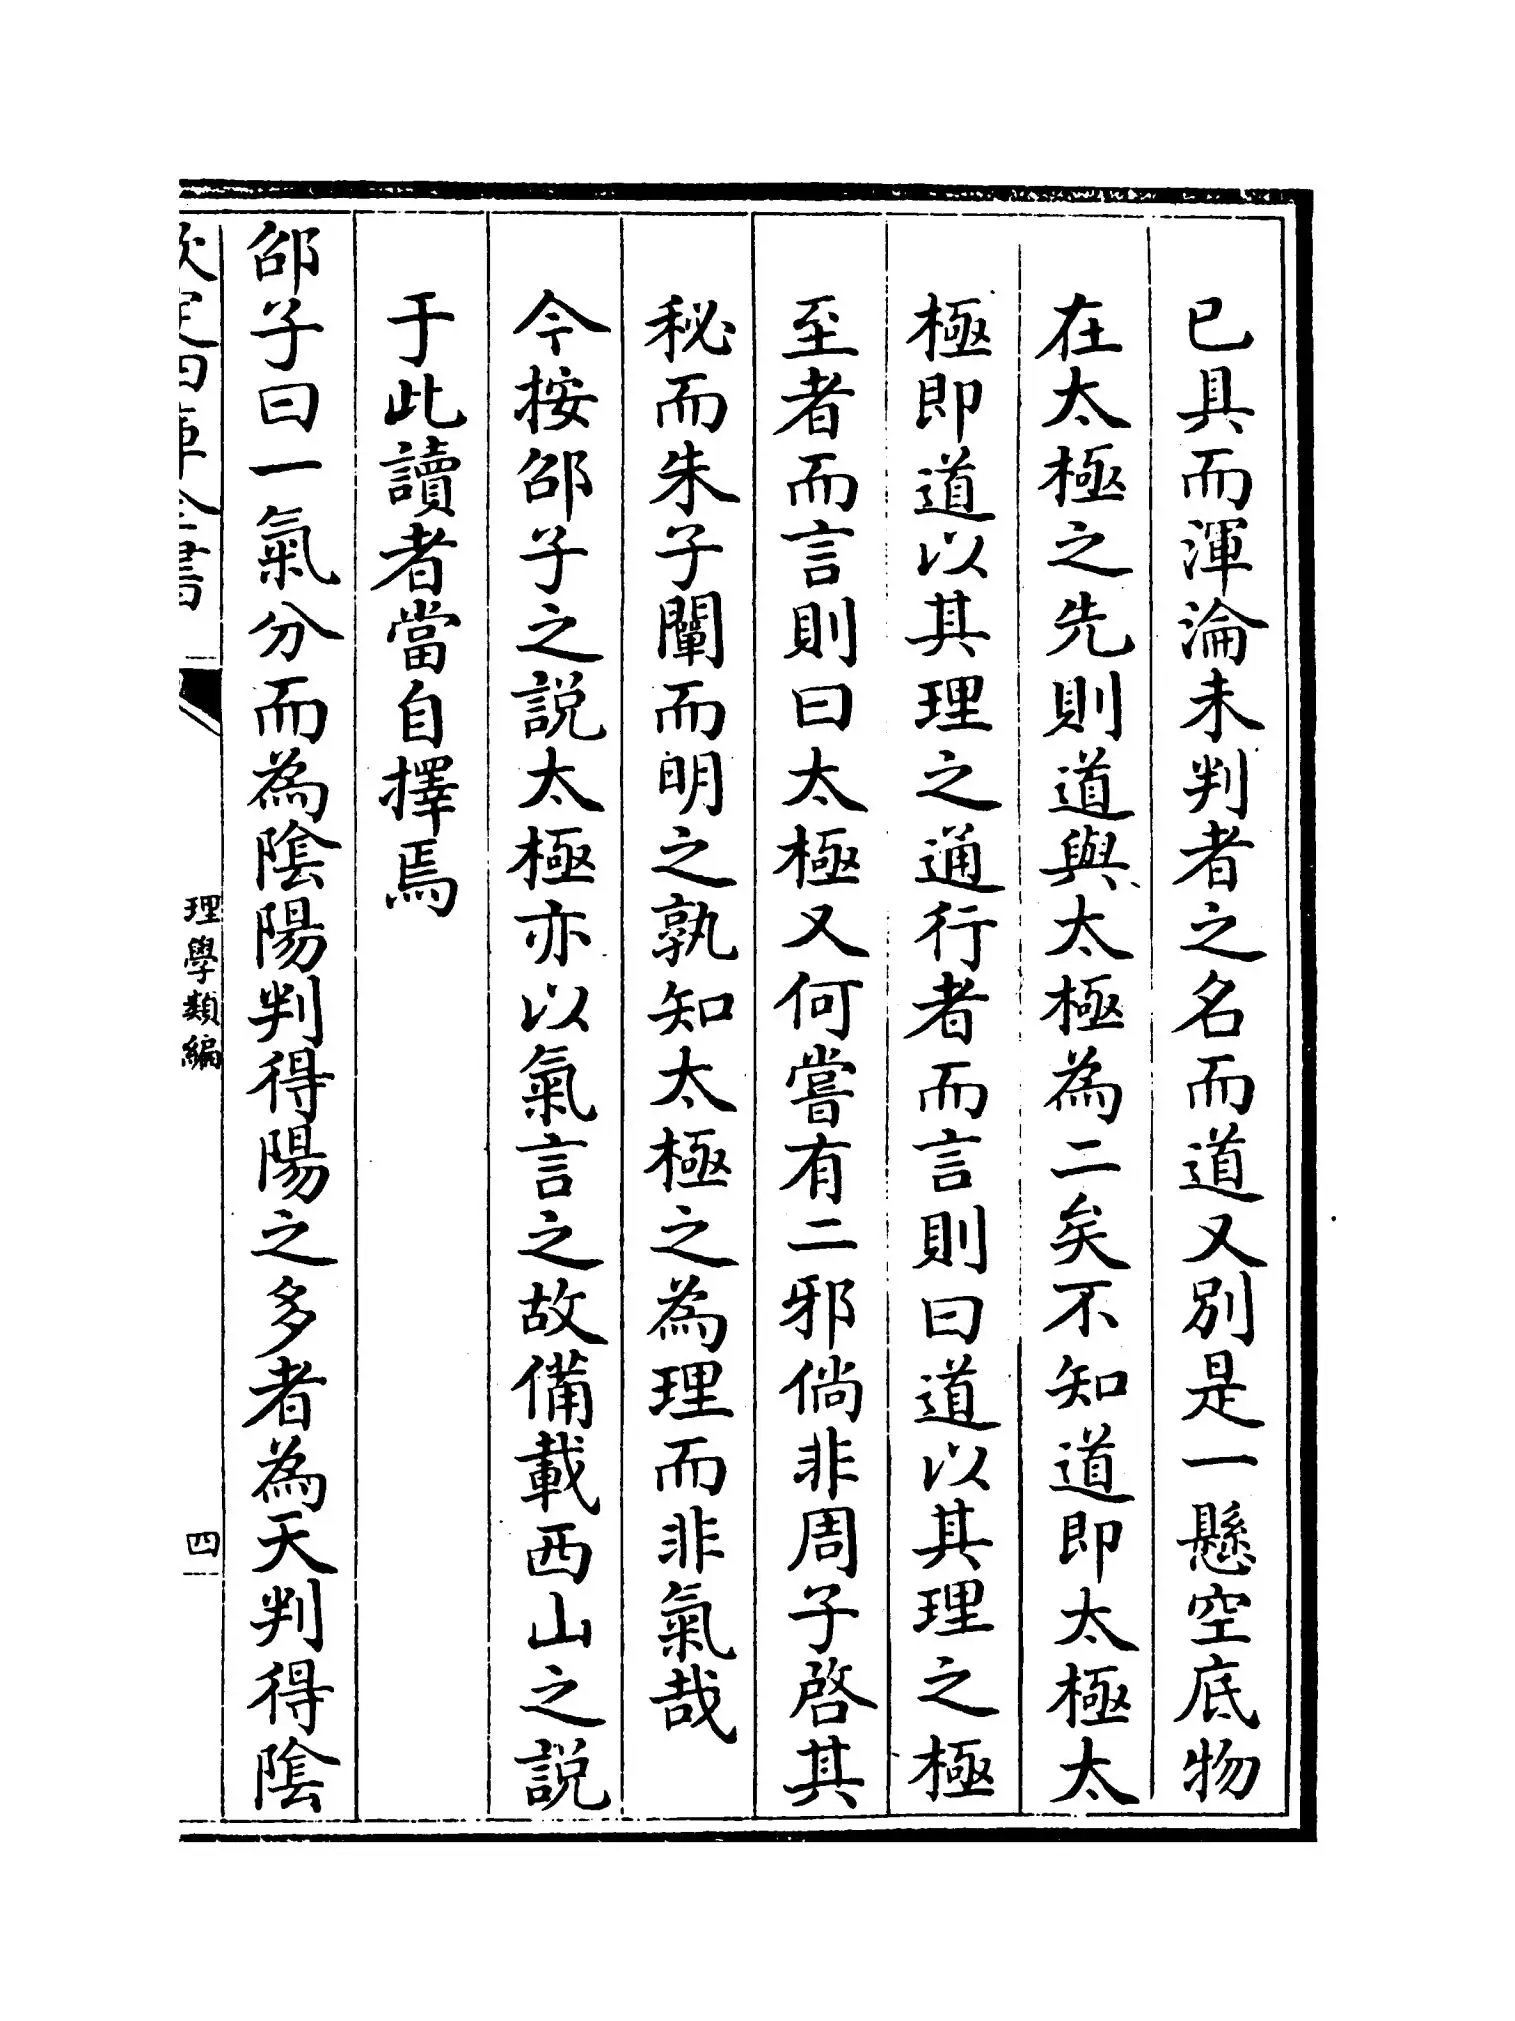 已具而渾淪未判者之名而道又别是一懸空底物
在太極之先則道與太極為二矣不知道即太極太
極即道以其理之通行者而言則曰道以其理之極
至者而言則曰太極又何嘗有二邪倘非周子啓其
秘而朱子闡而明之孰知太極之為理而非氣哉
今按邵子之說太極亦以氣言之故備載西山之說
于此讀者當自擇焉
邵子曰一氣分而為陰陽判得陽之多者為天判得陰
欽定四庫全書
理學類編
四